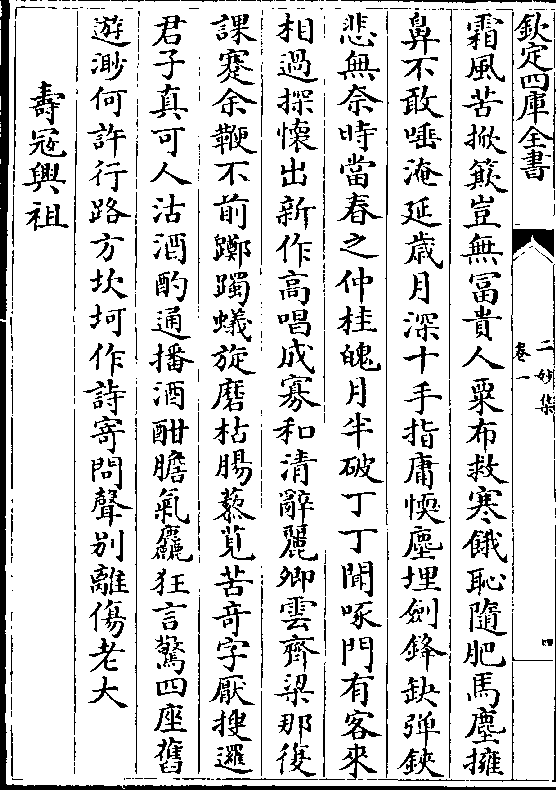 欽定四庫全書
卷一
霜風苦掀簸豈無冨貴人粟布救寒餓恥隨肥馬塵擁
鼻不敢唾淹延歳月深十手指庸愞塵埋劍鋒缺弹鋏
悲無奈時當春之仲桂魄月半破丁丁聞啄門有客來
相過探懷出新作高唱成寡和清辭麗卿雲齊梁那復
課蹇余鞭不前躑躅蟻旋磨枯腸藜莧苦奇字厭搜邏
君子真可人沽酒酌通播酒酣膽氣麤狂言驚四座舊
遊渺何許行路方坎坷作詩寄問聲别離傷老大
壽冦興祖